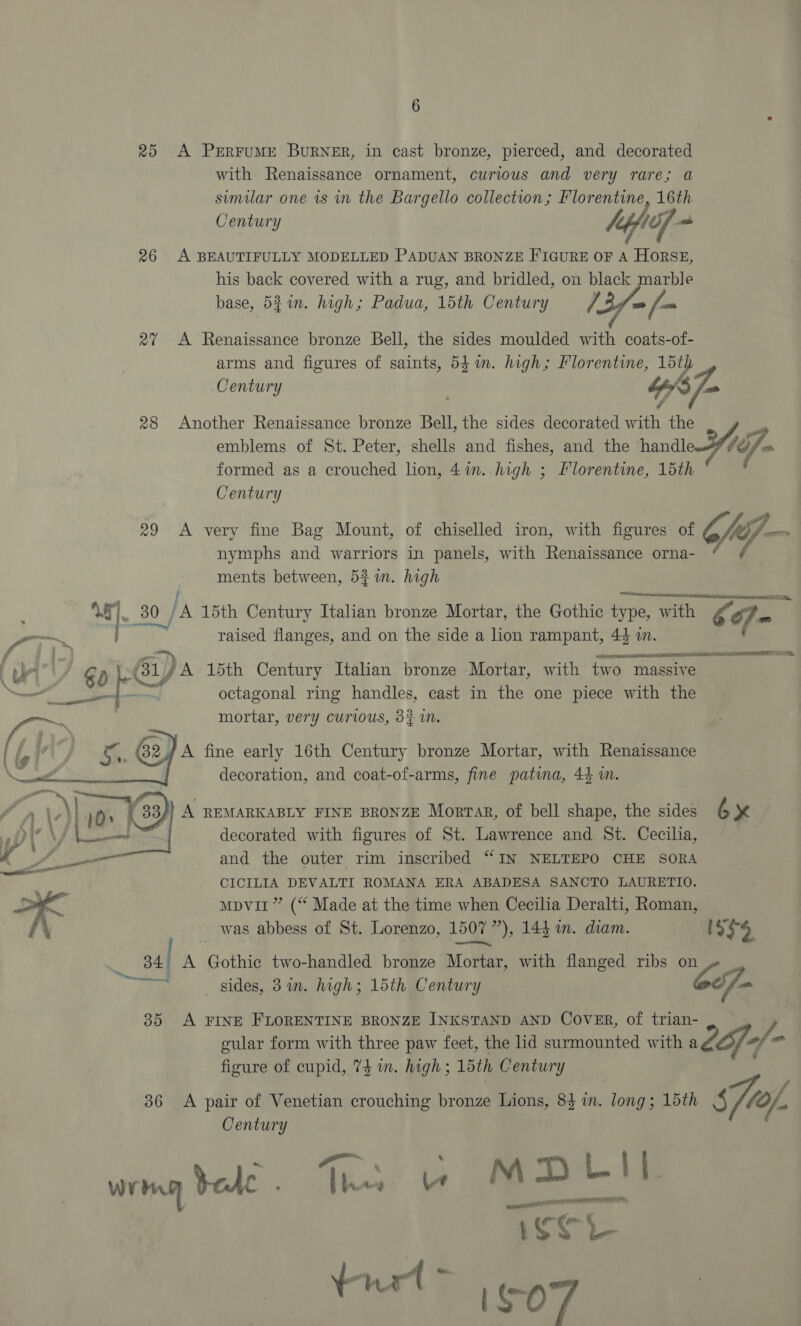 6
25 A PERFUME BURNER, in cast bronze, pierced, and decorated
with Renaissance ornament, curious and very rare; a
similar one is in the Bargello collection; Florentine, 16th
Century
26 A BEAUTIFULLY MODELLED PADUAN BRONZE FIGURE OF A HORSE,
his back covered with a rug, and bridled, on black marble
base, 5¾ in. high; Padua, 15th Century
27 A Renaissance bronze Bell, the sides moulded with coats-of-
arms and figures of saints, 5½ in. high; Florentine, 15th
Century
28 Another Renaissance bronze Bell, the sides decorated with the
emblems of St. Peter, shells and fishes, and the handle
formed as a crouched lion, 4 in. high ; Florentine, 15th
Century
29 A very fine Bag Mount, of chiselled iron, with figures of
nymphs and warriors in panels, with Renaissance orna-
ments between, 5¾ in. high
30 A 15th Century Italian bronze Mortar, the Gothic type, with
raised flanges, and on the side a lion rampant, 4½ in.
60 31 A 15th Century Italian bronze Mortar, with two massive
octagonal ring handles, cast in the one piece with the
mortar, very curious, 3¾ in.
5. 32 A fine early 16th Century bronze Mortar, with Renaissance
decoration, and coat-of-arms, fine patina, 4½ in.
10. 33 A REMARKABLY FINE BRONZE MORTAR, of bell shape, the sides 6x
decorated with figures of St. Lawrence and St. Cecilia,
and the outer rim inscribed “IN NELTEPO CHE SORA
CICILIA DEVALTI ROMANA ERA ABADESA SANCTO LAURETIO.
MDVII” (“Made at the time when Cecilia Deralti, Roman,
was abbess of St. Lorenzo, 1507”), 14½ in. diam. 1552
34 A Gothic two-handled bronze Mortar, with flanged ribs on
sides, 3 in. high; 15th Century
35 A FINE FLORENTINE BRONZE INKSTAND AND COVER, of trian-
gular form with three paw feet, the lid surmounted with a
figure of cupid, 7½ in. high; 15th Century
36 A pair of Venetian crouching bronze Lions, 8½ in. long; 15th
Century
wrong date. This is MDLII
1552
not 1507